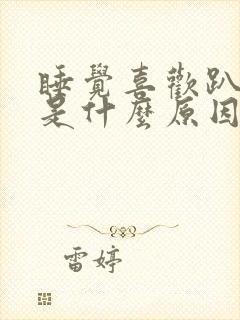 睡覺喜歡趴
是什麼原因
雷婷